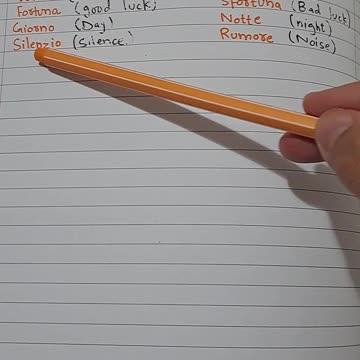 Fortuna (good luck) Sfortuna (Bad luck)
Giorno (Day) Notte (night)
Silenzio (Silence) Rumore (Noise)